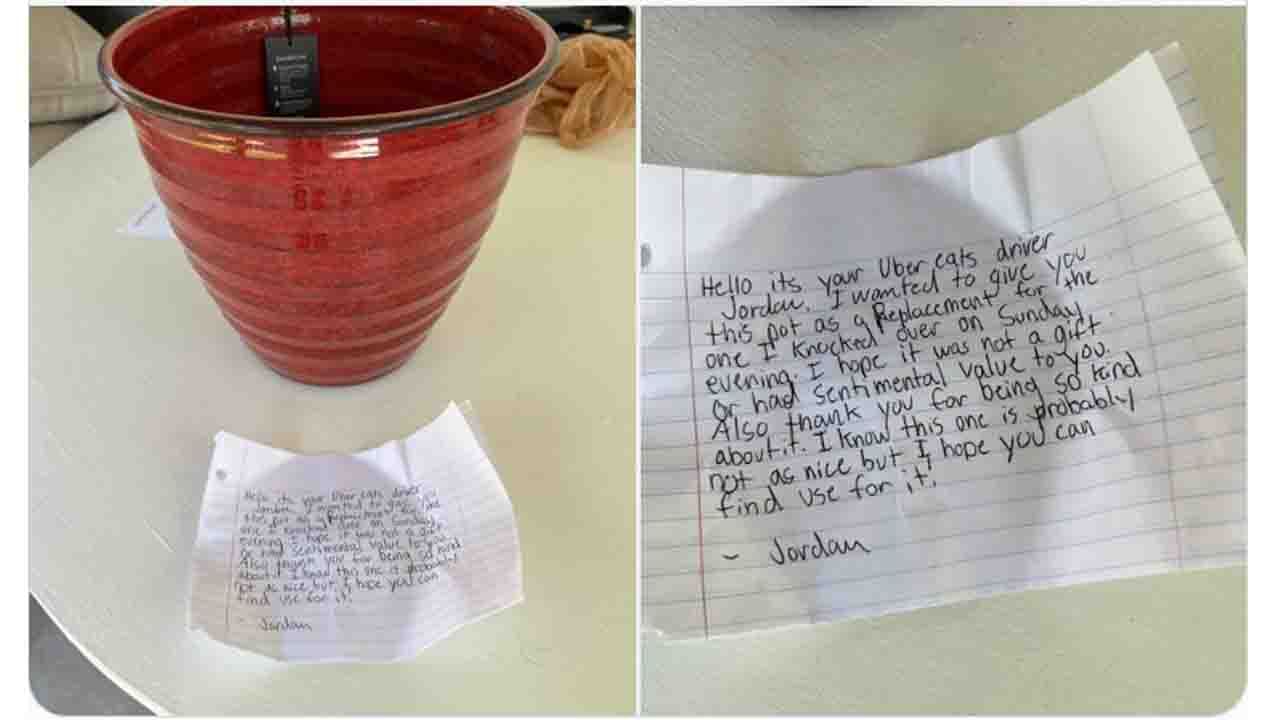 Hello its your Uber eats driver
Jordan. I wanted to give you
this pot as a Replacement for the
one I knocked over on Sunday
evening. I hope it was not a gift
or had sentimental value to you.
Also thank you for being so kind
about it. I know this one is probably
not as nice but I hope you can
find use for it!
- Jordan
Hello its your Uber eats driver
Jordan. I wanted to give you
this pot as a Replacement for the
one I knocked over on Sunday
evening. I hope it was not a gift
or had sentimental value to you.
Also thank you for being so kind
about it. I know this one is probably
not as nice but I hope you can
find use for it!
~ Jordan